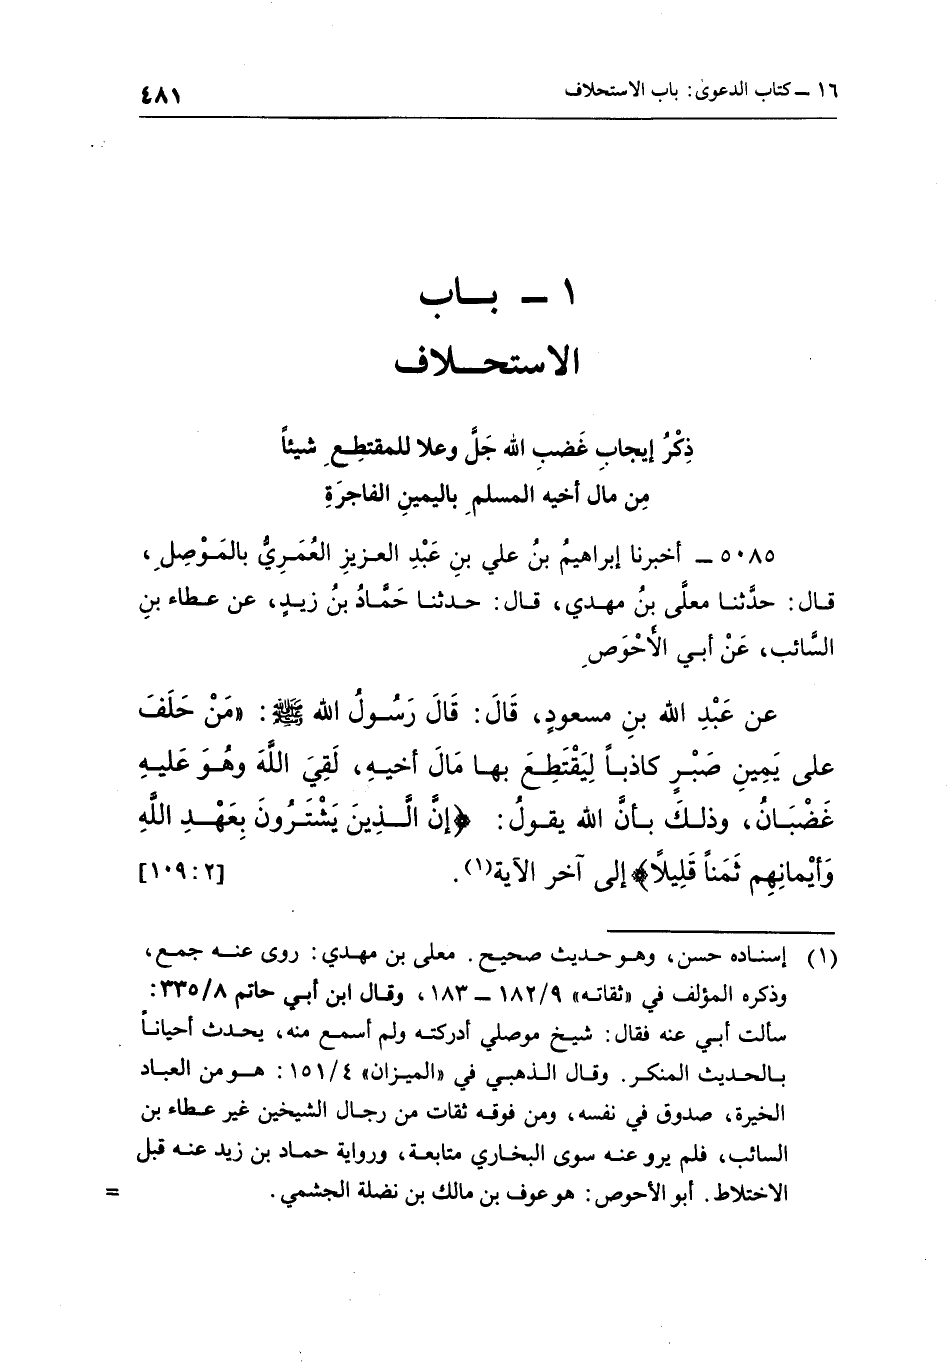 ١٦ ــ كتاب الدعوى: باب الاستحلاف
٤٨١
١ ــ بـاب
الاستحـلاف
ذِكْرُ إيجابِ غَضبِ الله جَلَّ وعلا للمقتطِعِ شيئاً
مِن مال أخيه المسلمِ باليمينِ الفاجرَةِ
٥٠٨٥ ــ أخبرنا إبراهيمُ بنُ علي بنِ عَبْدِ العزيزِ العُمَرِيُّ بالمَوْصِلِ،
قال: حدَّثنا معلَّى بنُ مهدي، قال: حدثنا حَمَّادُ بنُ زيدٍ، عن عطاء بنِ
السَّائب، عَنْ أبي الأَحْوَصِ
عن عَبْدِ الله بنِ مسعودٍ، قَالَ: قَالَ رَسُولُ الله ﷺ: «مَنْ حَلَفَ
على يَمِينِ صَبْرٍ كاذباً لِيَقْتَطِعَ بها مَالَ أخيهِ، لَقِيَ اللَّهَ وهُوَ عَليهِ
غَضْبَانُ، وذلكَ بأنَّ الله يقولُ: ﴿إنَّ الَّذِينَ يَشْتَرُونَ بِعَهْدِ اللَّهِ
وَأيْمانِهِم ثَمَناً قَلِيلاً﴾ إلى آخر الآية(١). [٢: ١٠٩]
(١) إسناده حسن، وهو حديث صحيح. معلى بن مهدي: روى عنه جمع،
وذكره المؤلف في «ثقاته» ١٨٢/٩ ــ ١٨٣، وقال ابن أبي حاتم ٣٣٥/٨:
سألت أبي عنه فقال: شيخ موصلي أدركته ولم أسمع منه، يحدث أحياناً
بالحديث المنكر. وقال الذهبي في «الميزان» ١٥١/٤: هو من العباد
الخيرة، صدوق في نفسه، ومن فوقه ثقات من رجال الشيخين غير عطاء بن
السائب، فلم يرو عنه سوى البخاري متابعة، ورواية حماد بن زيد عنه قبل
الاختلاط. أبو الأحوص: هو عوف بن مالك بن نضلة الجشمي. =